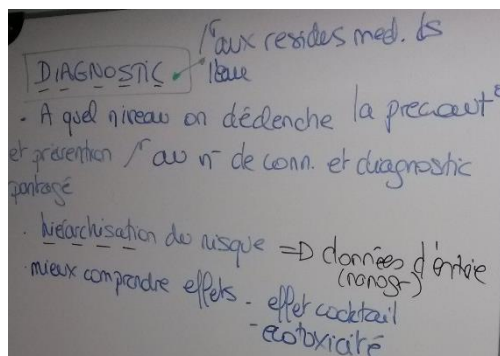 /r aux resides med. ds
DIAGNOSTIC l'eau
. A quel niveau on dédenche la precaut°
et prévention /r au nv de conn. et diagnostic
partagé
. hiérarchisation du risque => données d'entrée
(nanogr)
. mieux comprendre effets - effet cocktail
- ecotoxicité